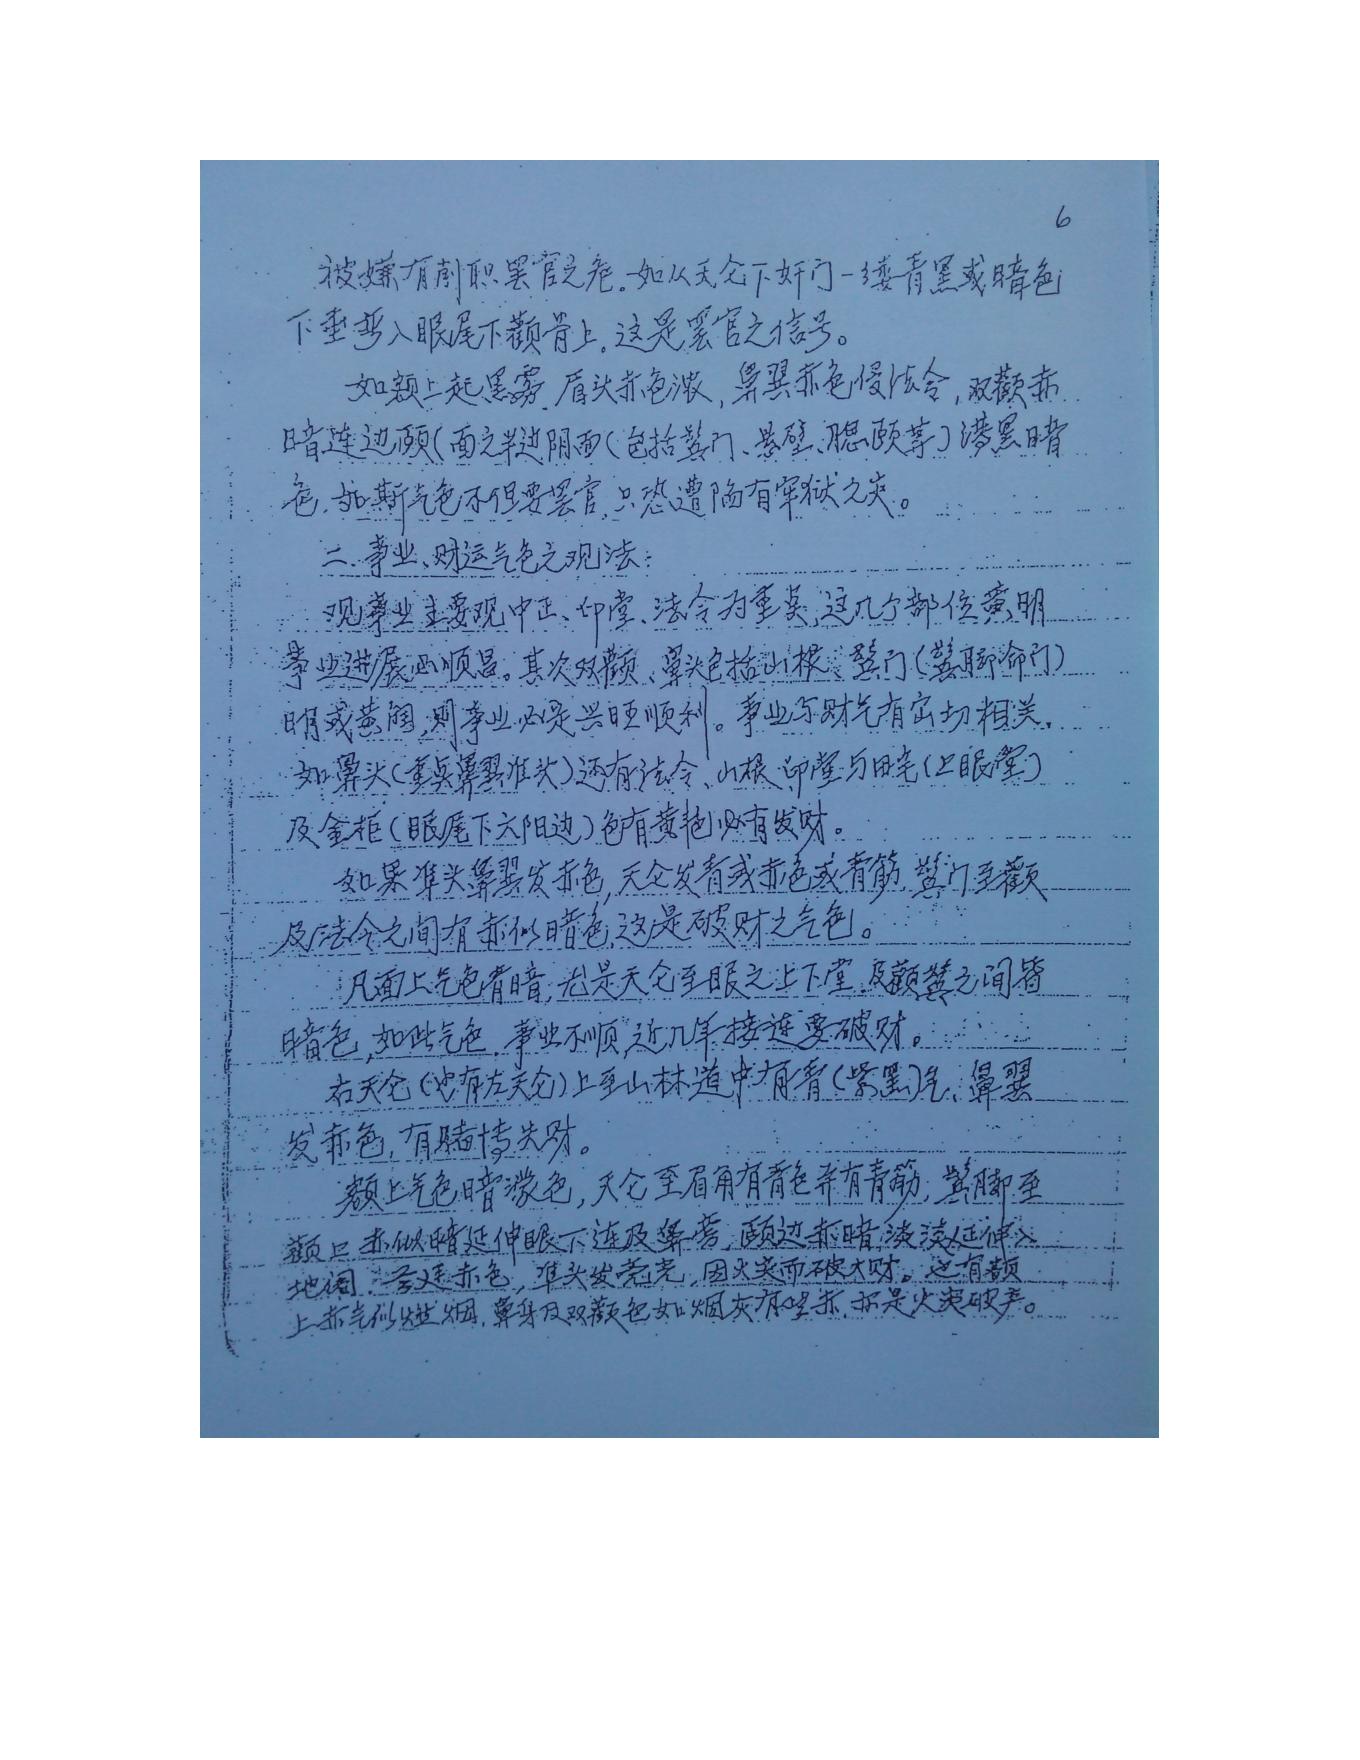 6
被嫌有削职罢官之危。如从天仑下奸门一缕青黑或暗色
下垂 入眼尾下颧骨上。这是罢官之信号。
如额上起黑雾，眉头赤色浓，鼻翼赤色侵法令，双颧赤
暗连边颐(面之半边阴面(包括鬓门、悬壁、腮颐等)漆黑暗
色，如斯气色不但要罢官，只恐遭陷有牢狱之灾。
二、事业、财运气色之观法：
观事业主要观中正、印堂、法令为重点，这几个部位黄明
事业进展必顺昌。其次双颧、鼻头包括山根、鬓门(鬓脚命门)
明或黄润，则事业必是兴旺顺利。事业与财气有密切相关。
如鼻头(重点鼻翼准头)还有法令、山根、印堂与田宅(上眼堂)
及金柜(眼尾下六阳边)色有黄艳必有发财。
如果准头鼻翼发赤色，天仑发青或赤色或青筋，鬓门至颧
及法令之间有赤似暗色，这是破财之气色。
凡面上气色青暗，尤是天仑至眼之上下堂，及颧鬓之间皆
暗色，如此气色，事业不顺，近几年接连要破财。
右天仑(也有左天仑)上至山林道中有青(紫黑)气，鼻翼
发赤色，有赌博失财。
额上气色暗濛色，天仑至眉角有青色并有青筋，鬓脚至
颧 赤似暗延伸眼下连及鼻旁，颐边赤暗淡淡延伸入
地阁，年廷赤色，准头发亮光，因火灾而破大财。也有额
上赤气似 烟，鼻身及双颧色如烟灰有 赤，亦是火灾破弄。